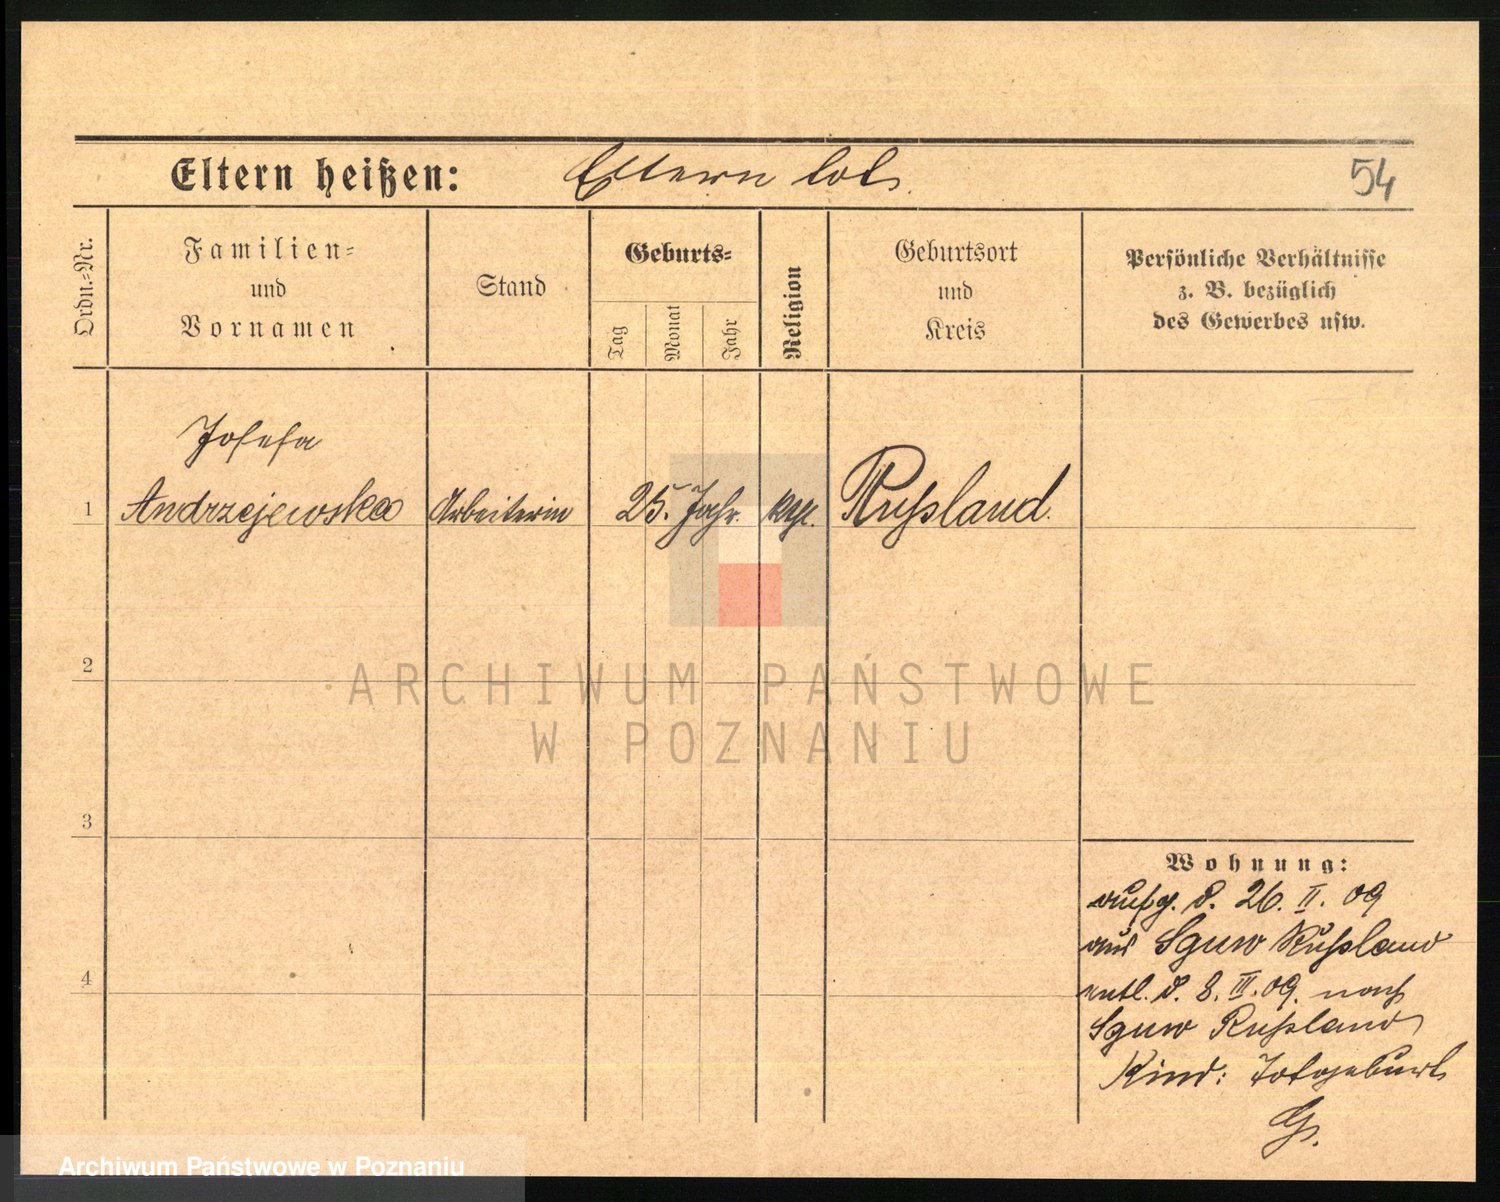 Eltern heißen: Eltern tot. 54
Ordn.-Nr.
Familien-
und
Vornamen
Stand
Geburts-
Tag
Monat
Jahr
Religion
Geburtsort
und
Kreis
Persönliche Verhältnisse
z. B. bezüglich
des Gewerbes usw.
Josefa
1 Andrzejewska Arbeiterin 25. Jahr. Russland.
2
3
4
Wohnung:
aufg. d. 26. II. 09
aus Sguw Russland
entl. d. 8. III. 09. nach
Sguw Russland
Kind: Totgeburt
G.
ARCHIWUM PAŃSTWOWE
W POZNANIU
Archiwum Państwowe w Poznaniu